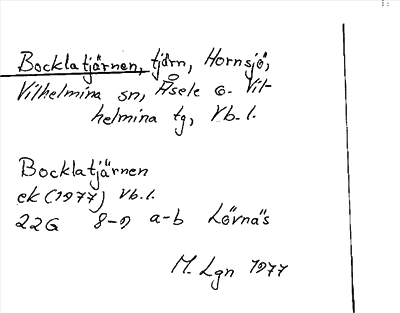 Bocklatjärnen, tjärn, Hornsjö,
Vilhelmina sn, Åsele o. Vil-
helmina tg, Vb. l.
Bocklatjärnen
ek (1977) Vb. l.
22G 8-9 a-b Lövnäs
M. Lgn 1977